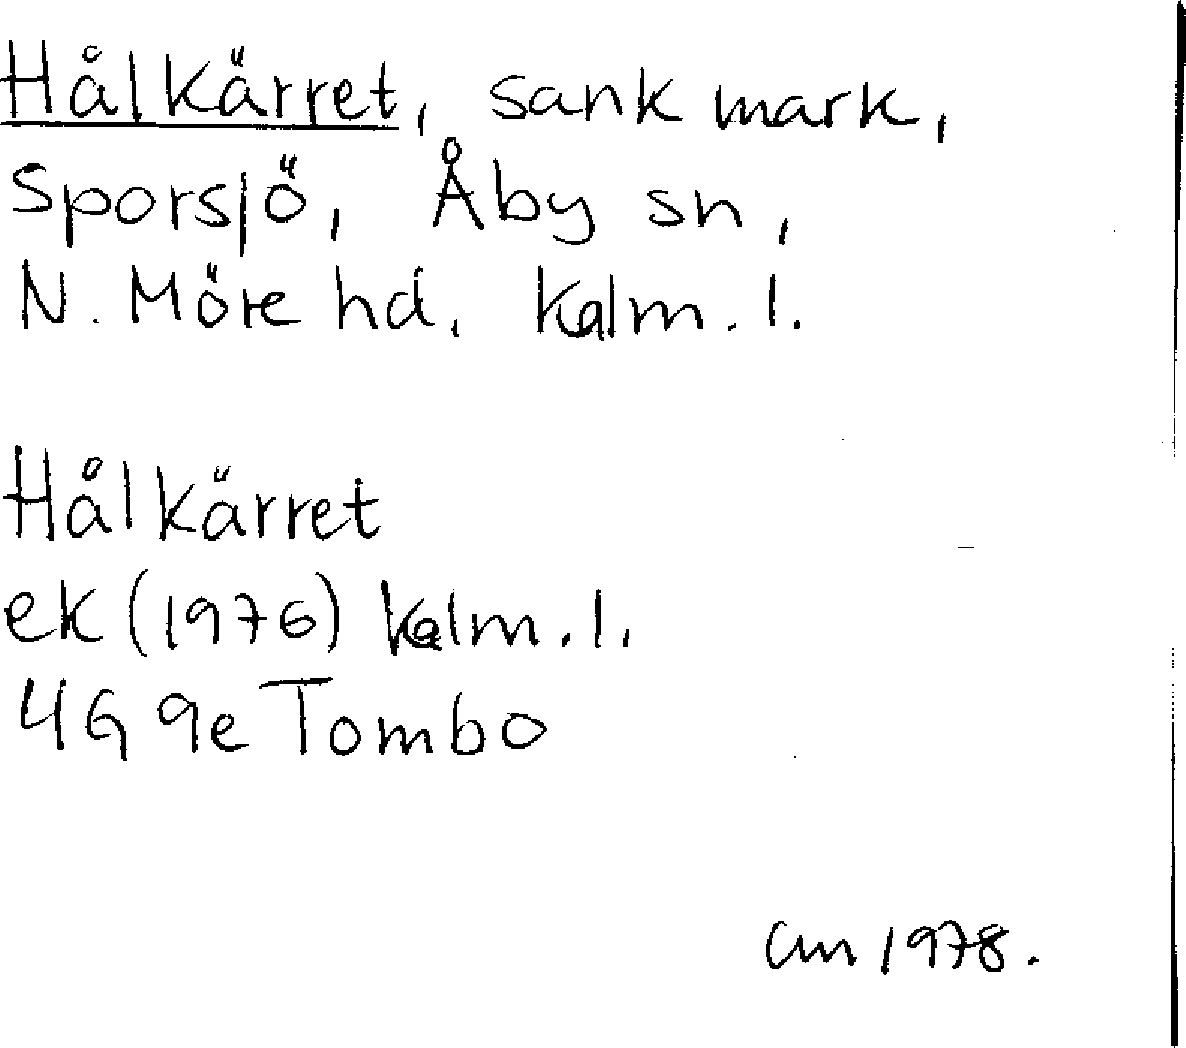 Hålkärret, sank mark,
Sporsjö, Åby sn,
N. Möre hd, Kalm. l.
Hålkärret
ek (1976) Kalm. l.
4G 9e Tombo
Cm 1978.